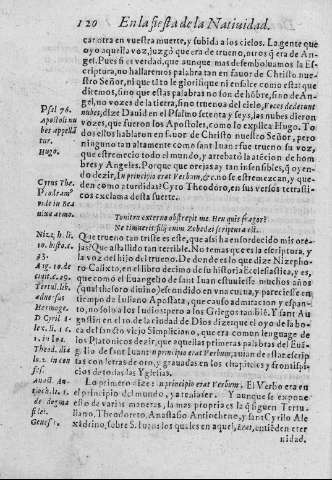 120 En la fiesta de la Natiuidad.
car otra en vuestra muerte, y subida a los cielos. La gente que
oyo aquella voz, juzgò que era de trueno, otros q̃ era de An-
gel. Pues si es verdad, que aunque mas desemboluamos la Es-
criptura, no hallaremos palabras tan en fauor de Christo nue-
stro Señor, ni que tãto le glorifique ni ensalce como estas que
diremos, sino que estas palabras no son de hõbre, sino de An-
gel, no vozes de la tierra, sino truenos del cielo, Voces dederunt
nubes, dize Dauid en el Psalmo setenta y seys, las nubes dieron
vozes, que fueron los Apostoles, como lo explica Hugo. To
dos ellos hablaron en fauor de Christo nuestro Señor, pero
ninguno tan altamente como sant Iuan: fue trueno su voz,
que estremecio todo el mundo, y arrebatò la atẽcion de hom
bres y Angeles. Porque que orejas ay tan insensibles, q̃ oyen-
do dezir, In principio erat Verbum, &c. no se estremezcan, y que-
den como aturdidas? Cyro Theodoro, en sus versos tetrasti-
cos exclama desta suerte.
Psal. 76.
Apostoli nu
bes appellã
tur.
Hugo.
Cyrus The.
Tonitru externo obstrepit me. Heu quis fragor?
Ne timueris filij enim Zebedei scriptura est.
Que trueno tan triste es este, que assi ha ensordecido mis ore-
jas? Que assistido tan terrible. No temas que es la escriptura, y
la voz del hijo del trueno. De donde es lo que dize Nizepho-
ro Calixto, en el libro decimo de su historia Ecclesiastica, y es,
que como el Euangelio de sant Iuan estuuiesse muchos años
(qual thesoro diuino) escondido en vna cueua, y pareciesse en
tiempo de Iuliano Apostata, que causò admiracion y espan-
to, no solo a los Iudios pero a los Griegos tambiẽ. Y sant Au
gustin en el 10. de la ciudad de Dios dize que el oyo de la bo-
ca del sancto viejo Simpliciano, que era comun lenguage de
los Platonicos dezir, que aquellas primeras palabras del Euã-
gelio de sant Iuan: In principio erat Verbum, auian de estar escrip
tas con letras de oro, y grauadas en los chapiteles y frontispi-
cios de todas las Yglesias.
Lo primero dize: In principio erat Verbum. El Verbo era en
el principio del mundo, ya tenia ser. Y aunque se expone
esto de varias maneras, la mas propria es la q̃ siguen Tertu-
liano, Theodoreto, Anastasio Antiocheno, y sant Cyrilo Ale
xãdrino, sobre S. Iuan: los quales en aquel, Erat, entiẽden eter
nidad.
Genes. 1.